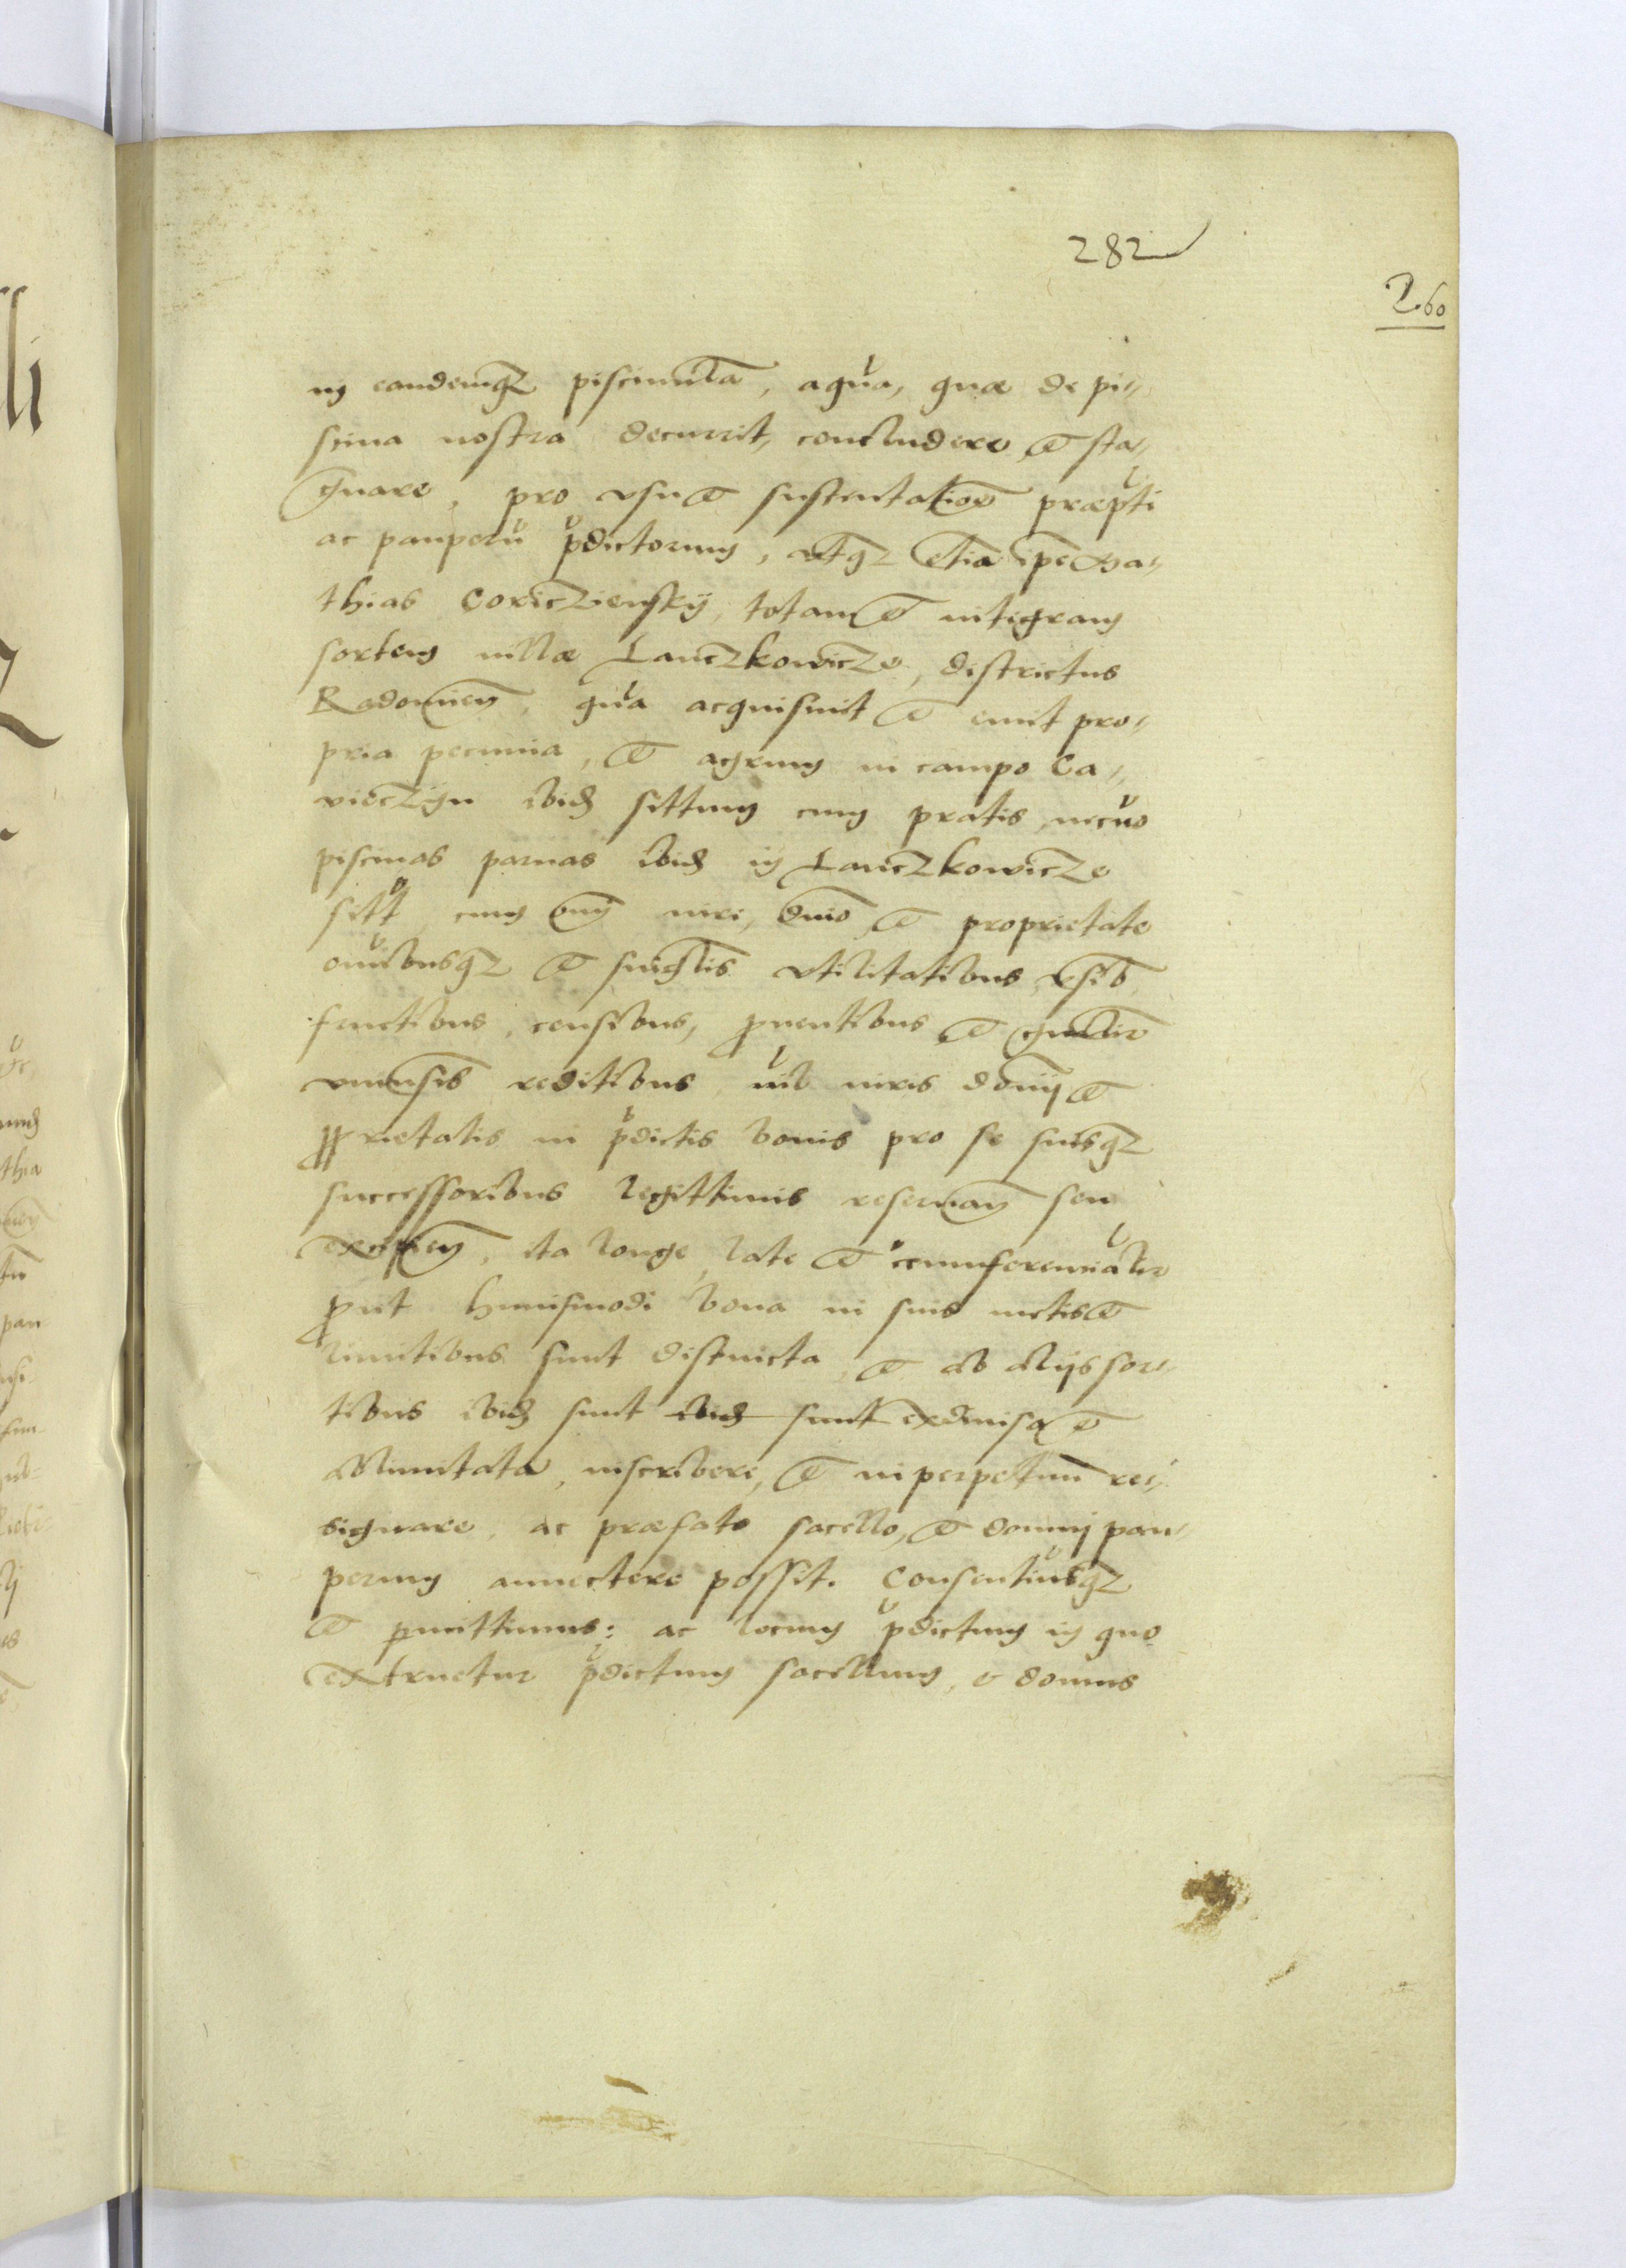 282
260
in eandemq piscinulã, aqua, quæ de pi-
scina nostra decurrit, concludere et sta-
gnare, pro usu et sustentationẽ præpti
ac pauperũ p̃dictorum, utq etiã ipẽ Ma-
thias Coricziensky, totam et integram
sortem villæ Lanczkowicze, districtus
Radomieñ, quã acquisivit et emit pro-
pria pecunia, et agrum in campo Ca-
ibid sittum cum pratis, necno
piscinas parvas ibid in Lanczkowicze
sitt, cum omni iuri, dnio et proprietate
omibusq et singlis utilitatibus, usib
fructibus, censibus, pventibus et gnalir
universis reditibus, nil iuris domij et
pprietatis in p̃dictis bonis pro se suisq
successoribus legittimis reservañ seu
excipieñ, ita longe, late et circumferencialir
prut huiusmodi bona in suis metis et
limitibus sunt distincta, et ab alijs sor-
tibus ibid sunt ibid sunt exdivisa et
alimitata, inscribere, et in perpetuũ re-
signare, ac præfato sacello, et domuj pau-
perum annectere possit. Consentimusq
et pmittimus: ac locum p̃dictum in quo
extruetur p̃dictum sacellum, et domus